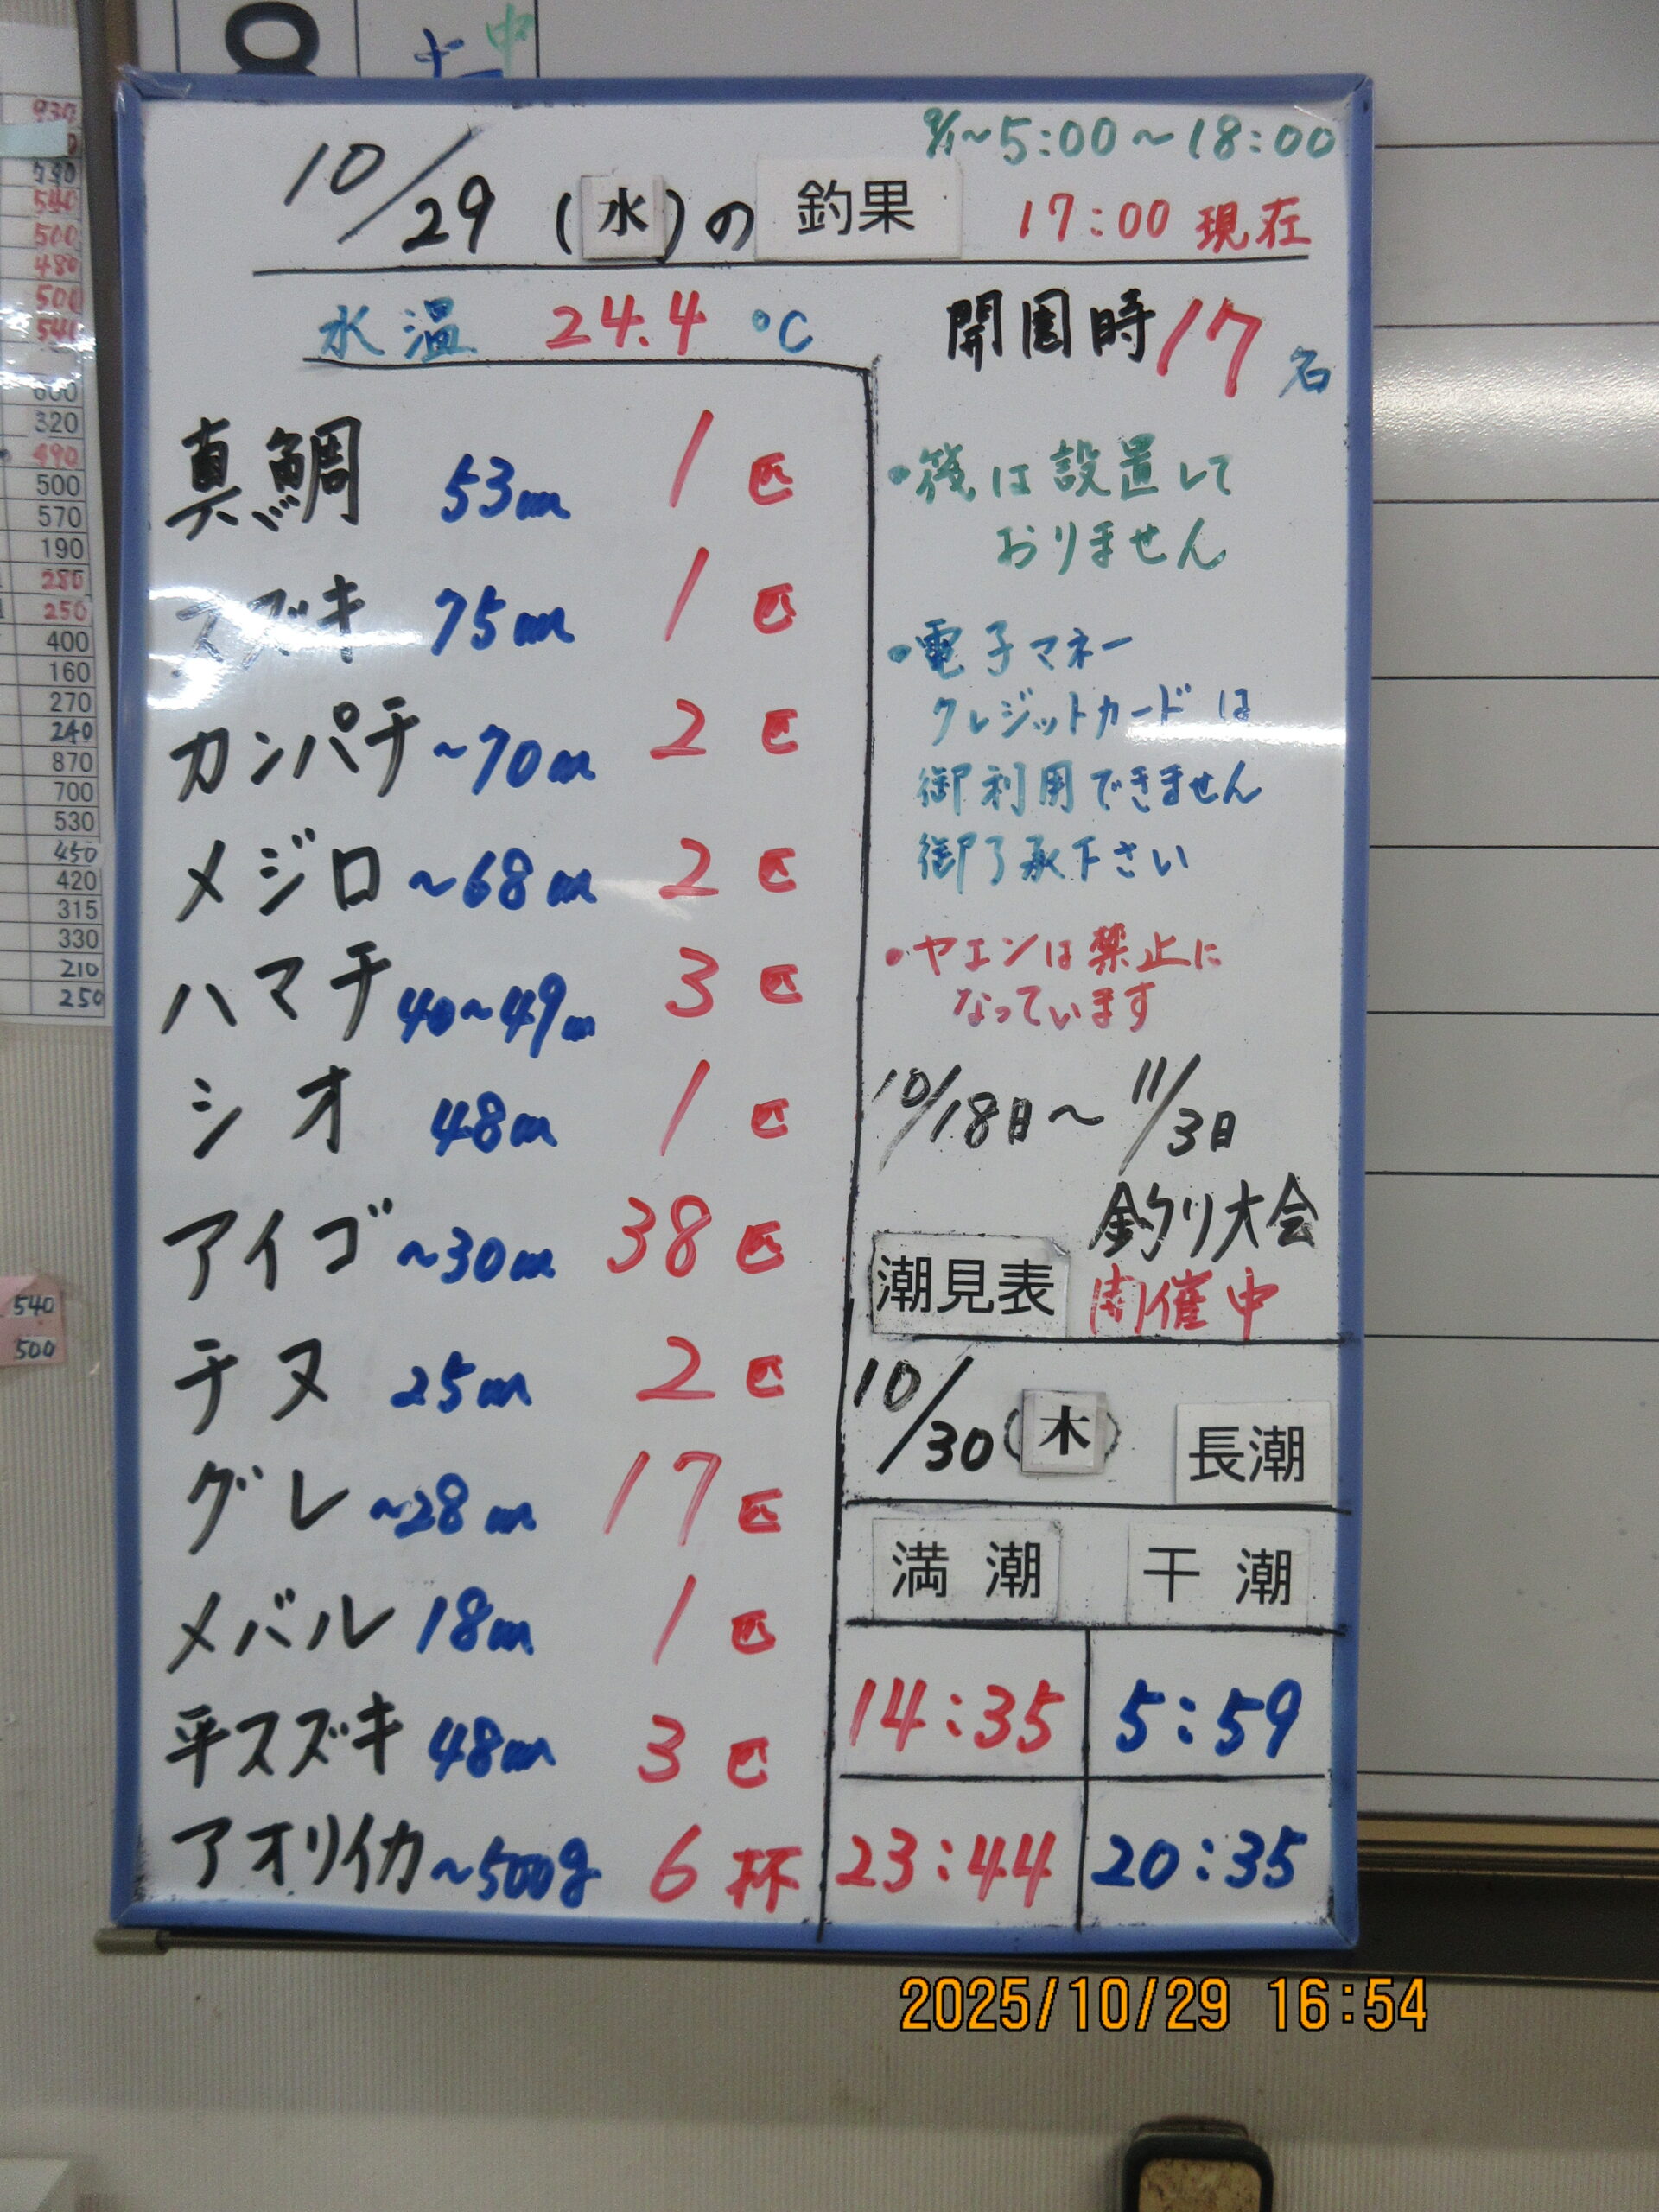 9/1~5:00~18:00
10/29(水)の釣果
17:00 現在
水温 24.4 ℃
開園時17名
真鯛 53cm 1匹
スズキ 75cm 1匹
カンパチ ~70cm 2匹
メジロ ~68cm 2匹
ハマチ 40~49cm 3匹
シオ 48cm 1匹
アイゴ ~30cm 38匹
チヌ 25cm 2匹
グレ ~28cm 17匹
メバル 18cm 1匹
平スズキ 48cm 3匹
アオリイカ ~500g 6杯
・筏は設置して
おりません
・電子マネー
クレジットカードは
御利用できません
御了承下さい
・ヤエンは禁止に
なっています
10/18日~11/3日
釣り大会
開催中
潮見表
10/30(木) 長潮
満潮 干潮
14:35 5:59
23:44 20:35
2025/10/29 16:54
930
540
500
480
500
320
490
500
570
190
280
250
400
160
270
240
870
700
530
450
420
315
330
210
250
540
500